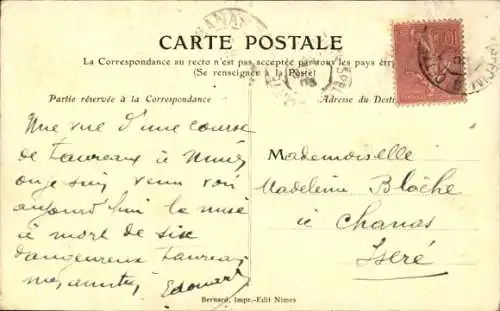 CARTE POSTALE
La Correspondance au recto n'est pas acceptée par tous les pays étr
(Se renseigner à la Poste)
Partie réservée à la Correspondance
Adresse du Desti
Une vue d'une course
de Taureaux à Nimes
ou je suis venu voir
aujourd'hui la mise
à mort de six
dangeureux Taureaux
mes amitiés Edouard
Mademoiselle
Madeleine Blache
à Chanas
Isère
Bernard, Impr.-Edit Nimes